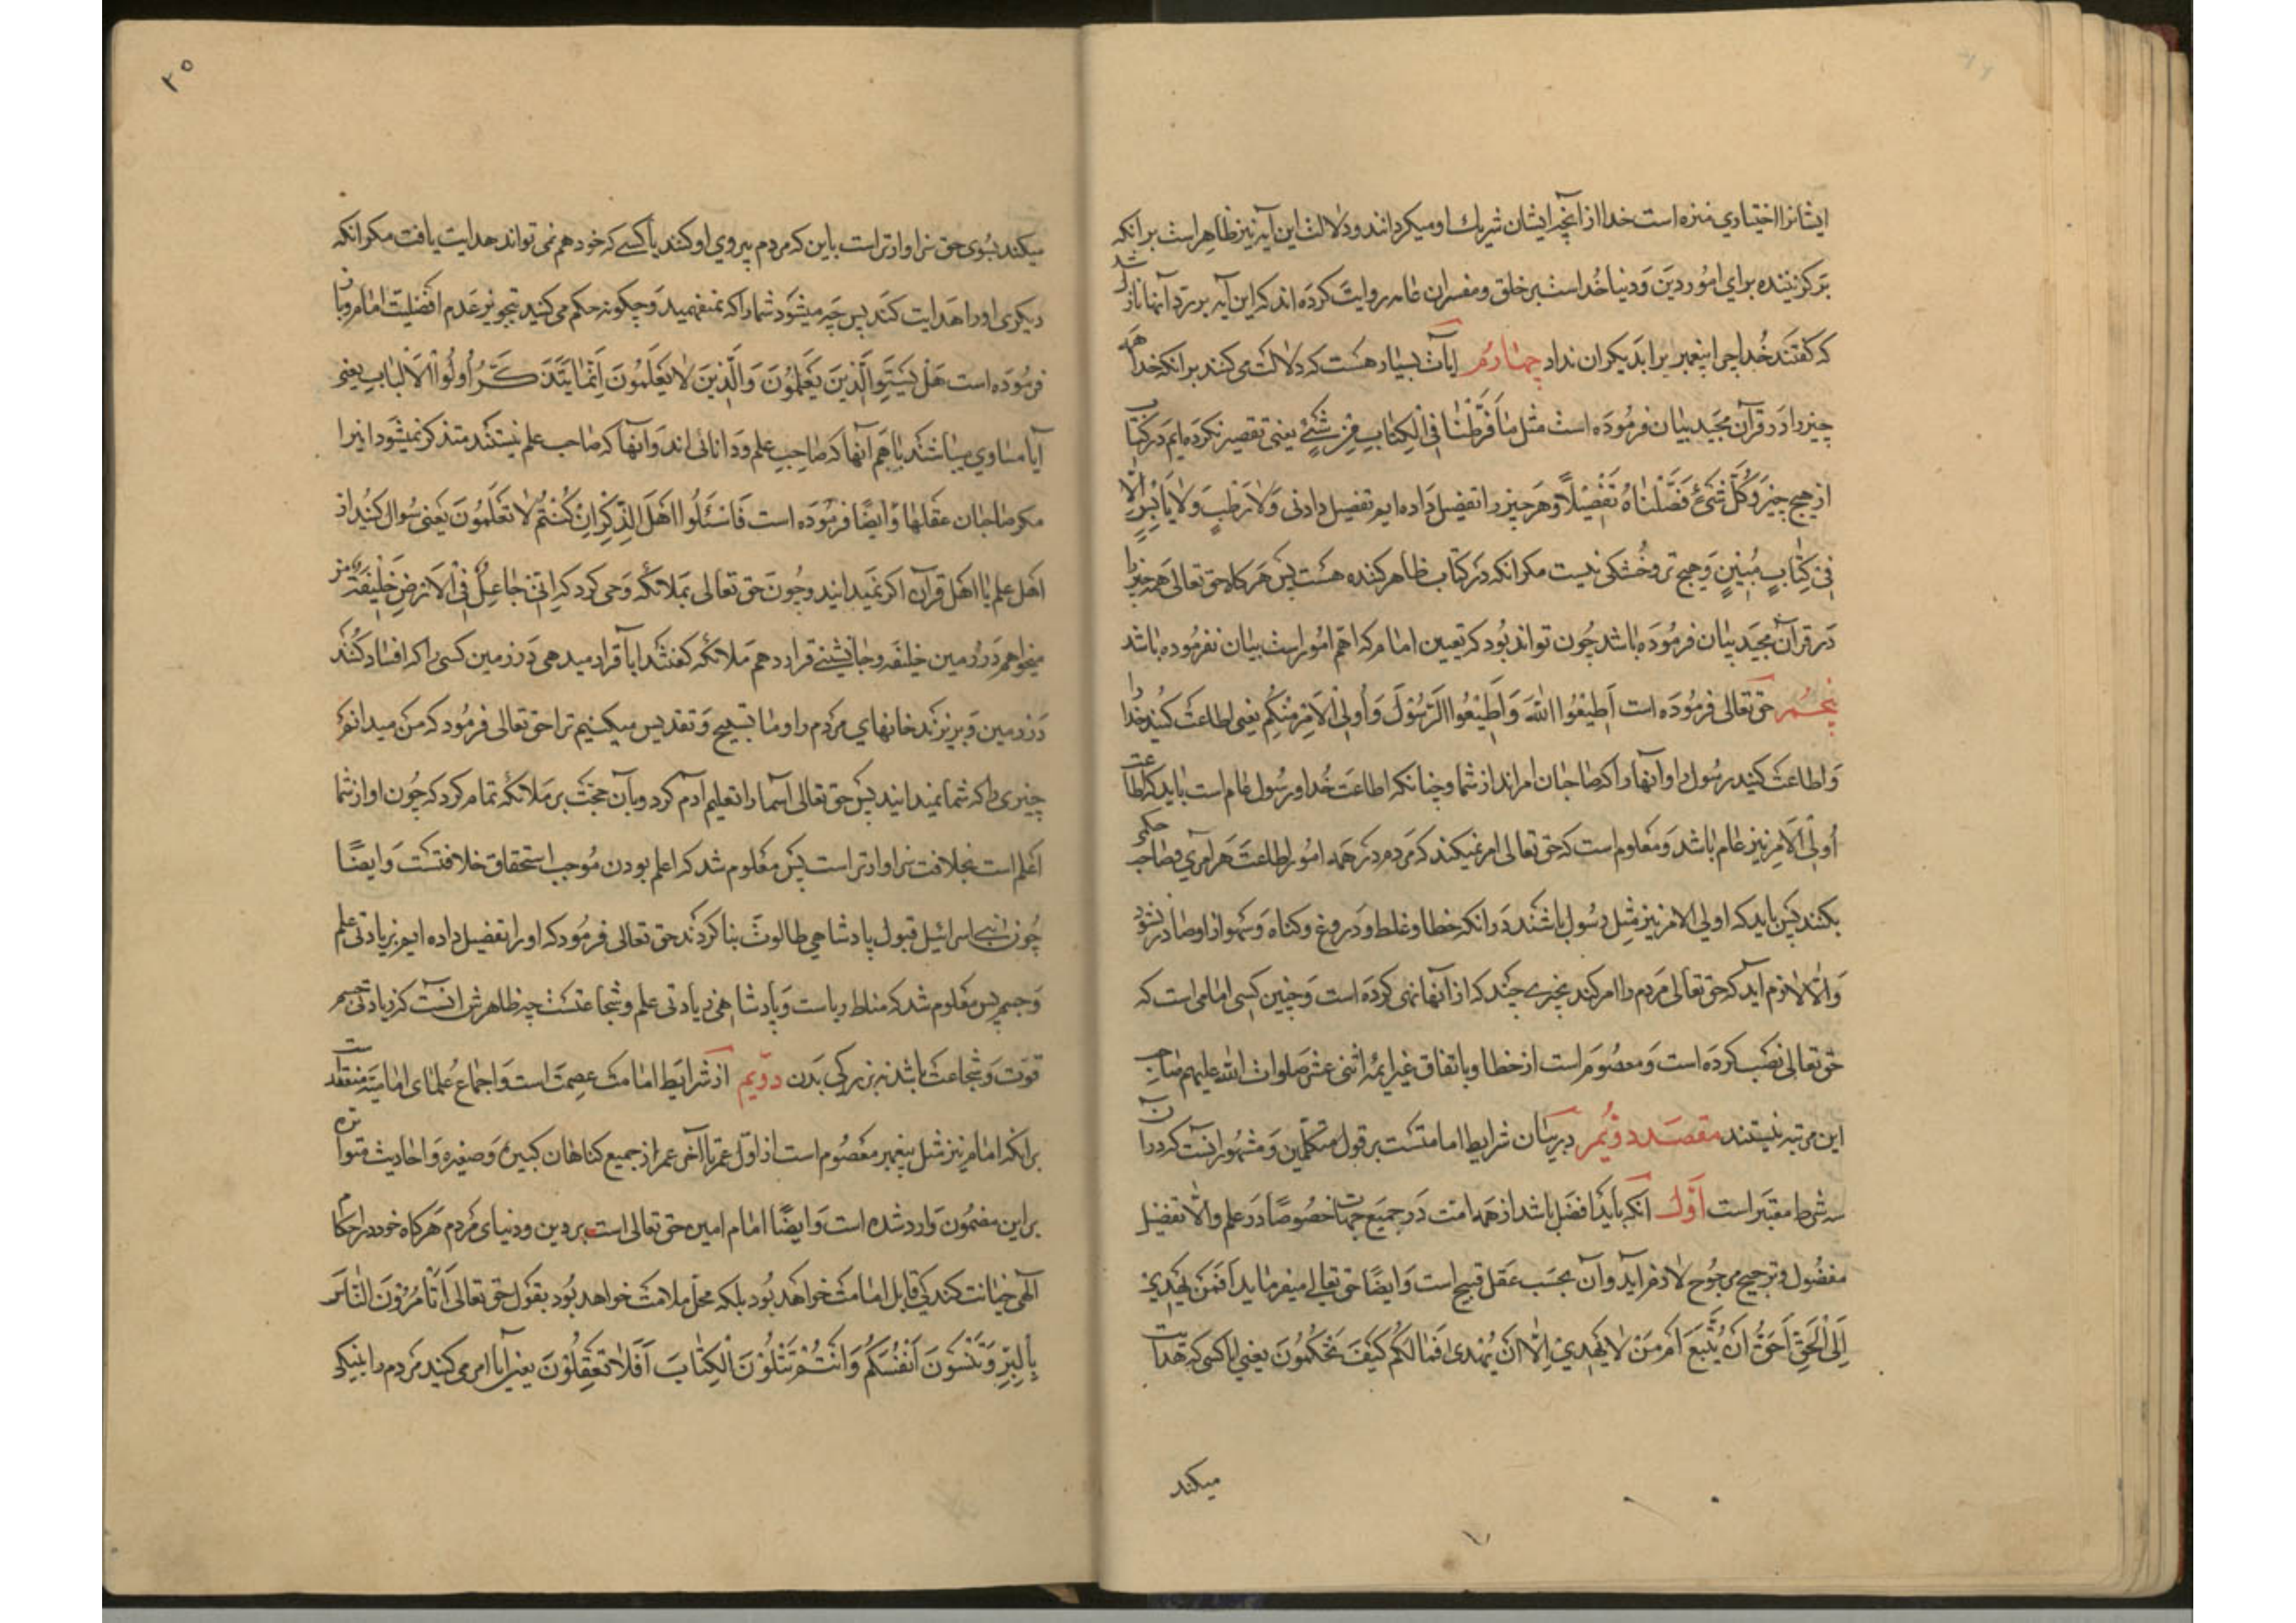 ایشانرا اختیاری منزه است خدا از آنچه ایشان شریك او میکردانند ودلالت این آیه نیز ظاهر است بر آنکه
برکزیننده برای امور دین ودنیا خداست بر خلق ومفسران عامه روایت کرده اند که این آیه بر رد آنها نازل شد
که کفتند خدا چرا پیغمبر برا بدیکران نداد چهارم ایات بسیار هست که دلالت می کنند بر آنکه خدا همه
چیز را در قرآن مجید بیان فرموده است مثل ما فَرَّطْنا فِی الْکِتابِ مِنْ شَیْءٍ یعنی تقصیر نکرده ایم در کتاب
از هیچ چیز وَکُلَّ شَیْءٍ فَصَّلْناهُ تَفْصِیلًا وهر چیز را تفضیل داده ایم تفضیل دادنی وَلا رَطْبٍ وَلا یابِسٍ إِلَّا
فِی کِتابٍ مُبِینٍ وهیچ تر وخشکی نیست مکر آنکه در کتاب ظاهر کننده هست پس هر کاه حق تعالی همه چیز را
در قرآن مجید بیان فرموده باشد چون تواند بود که تعیین امام که اهم امور است بیان نفرموده باشد
پنجم حق تعالی فرموده است أَطِیعُوا اللَّهَ وَأَطِیعُوا الرَّسُولَ وَأُولِی الْأَمْرِ مِنْکُمْ یعنی اطاعت کنید خدا را
واطاعت کنید رسول را وآنها را که صاحبان امراند از شما وچنانکه اطاعت خدا ورسول عام است باید که اطاعت
اُولِی الْاَمر نیز عام باشد ومعلوم است که حق تعالی امر نمیکند که مردم در همه امور اطاعت هر امری وصاحب حکمی
بکنند پس باید که اولی الامر نیز مثل رسول باشند در آنکه خطا وغلط ودروغ وکناه وسهو از او صادر نشود
والّا لازم آید که حق تعالی مردم را امر کند بچیزی چند که از آنها نهی کرده است وچنین کسی امامی است که
حق تعالی نصب کرده است ومعصوم است از خطا وباتفاق غیر ائمه اثنی عشر صلوات الله علیهم صاحب
این مرتبه نیستند مقصد دویم در بیان شرایط امامتست بر قول متکلمین ومشهور آنست که در آن
سه شرط معتبر است اوّل آنکه باید افضل باشد از همه امت در جمیع جهات خصوصًا در علم والّا تفضیل
مفضول وترجیح مرجوح لازم آید وآن بحسب عقل قبیح است وایضًا حق تعالی میفرماید أَفَمَنْ یَهْدِی
إِلَی الْحَقِّ أَحَقُّ أَنْ یُتَّبَعَ أَمْ مَنْ لا یَهِدِّی إِلَّا أَنْ یُهْدی فَما لَکُمْ کَیْفَ تَحْکُمُونَ یعنی آیا کسی که هدایت
میکند
۲۵
میکند بسوی حق سزاوارتر است باین که مردم پیروی او کنند یا کسی که خود هم نمی تواند هدایت یافت مکر آنکه
دیکری او را هدایت کند پس چه میشود شما را که نمیفهمید وچکونه حکم می کنید بتجویز عدم افضلیّت امام وباز
فرموده است هَلْ یَسْتَوِی الَّذِینَ یَعْلَمُونَ وَالَّذِینَ لا یَعْلَمُونَ إِنَّما یَتَذَکَّرُ أُولُوا الْأَلْبابِ یعنی
آیا مساوی میباشند با هم آنها که صاحب علم ودانائی اند وآنها که صاحب علم نیستند متذکر نمیشود اینرا
مکر صاحبان عقلها وایضًا فرموده است فَاسْئَلُوا أَهْلَ الذِّکْرِ إِنْ کُنْتُمْ لا تَعْلَمُونَ یعنی سوال کنید از
اهل علم یا اهل قرآن اکر نمیدانید وچون حق تعالی بملائکه وحی کرد که إِنِّی جاعِلٌ فِی الْأَرْضِ خَلِیفَةً من
میخواهم در زمین خلیفه وجانشینی قرار دهم ملائکه کفتند ایا قرار میدهی در زمین کسی را که افساد کنند
در زمین وبریزند خانهای مردم را وما تسبیح وتقدیس میکنیم ترا حق تعالی فرمود که من میدانم
چیزی را که شما نمیدانید پس حق تعالی اسما را تعلیم ادم کرد وبآن حجت بر ملائکه تمام کرد که چون او از شما
اعلم است بخلافت سزاوارتر است پس معلوم شد که اعلم بودن موجب استحقاق خلافتست وایضًا
چون بنی اسرائیل قبول پادشاهی طالوت بنا کردند حق تعالی فرمود که او را تفضیل داده ایم بزیادتی علم
وجسم پس معلوم شد که مناط ریاست وپادشاهی زیادتی علم وشجاعتست چه ظاهرش آنست که زیادتی جسم
قوت وشجاعت باشد نه بزرکی بدن دویم از شرایط امامت عصمت است واجماع علمای امامیّه منعقد است
بر آنکه امام نیز مثل پیغمبر معصوم است از اوّل عمر تا آخر عمر از جمیع کناهان کبیره وصغیره واحادیث متواتره
بر این مضمون وارد شده است وایضًا امام امین حق تعالی است بر دین ودنیای مردم هرکاه خود در احکام
الهی خیانت کند کی قابل امامت خواهد بود بلکه محل ملامت خواهد بود بقول حق تعالی أَتَأْمُرُونَ النَّاسَ
بِالْبِرِّ وَتَنْسَوْنَ أَنْفُسَکُمْ وَأَنْتُمْ تَتْلُونَ الْکِتابَ أَفَلا تَعْقِلُونَ یعنی آیا امر می کنید مردم را بنیکی